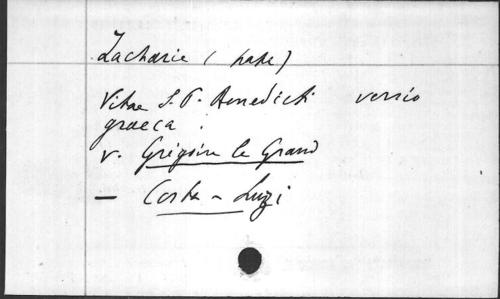 Zacharie (pape)
Vitae S. P. Benedicti versio
graeca.
v. Grégoire le Grand
— Costa - Luzi